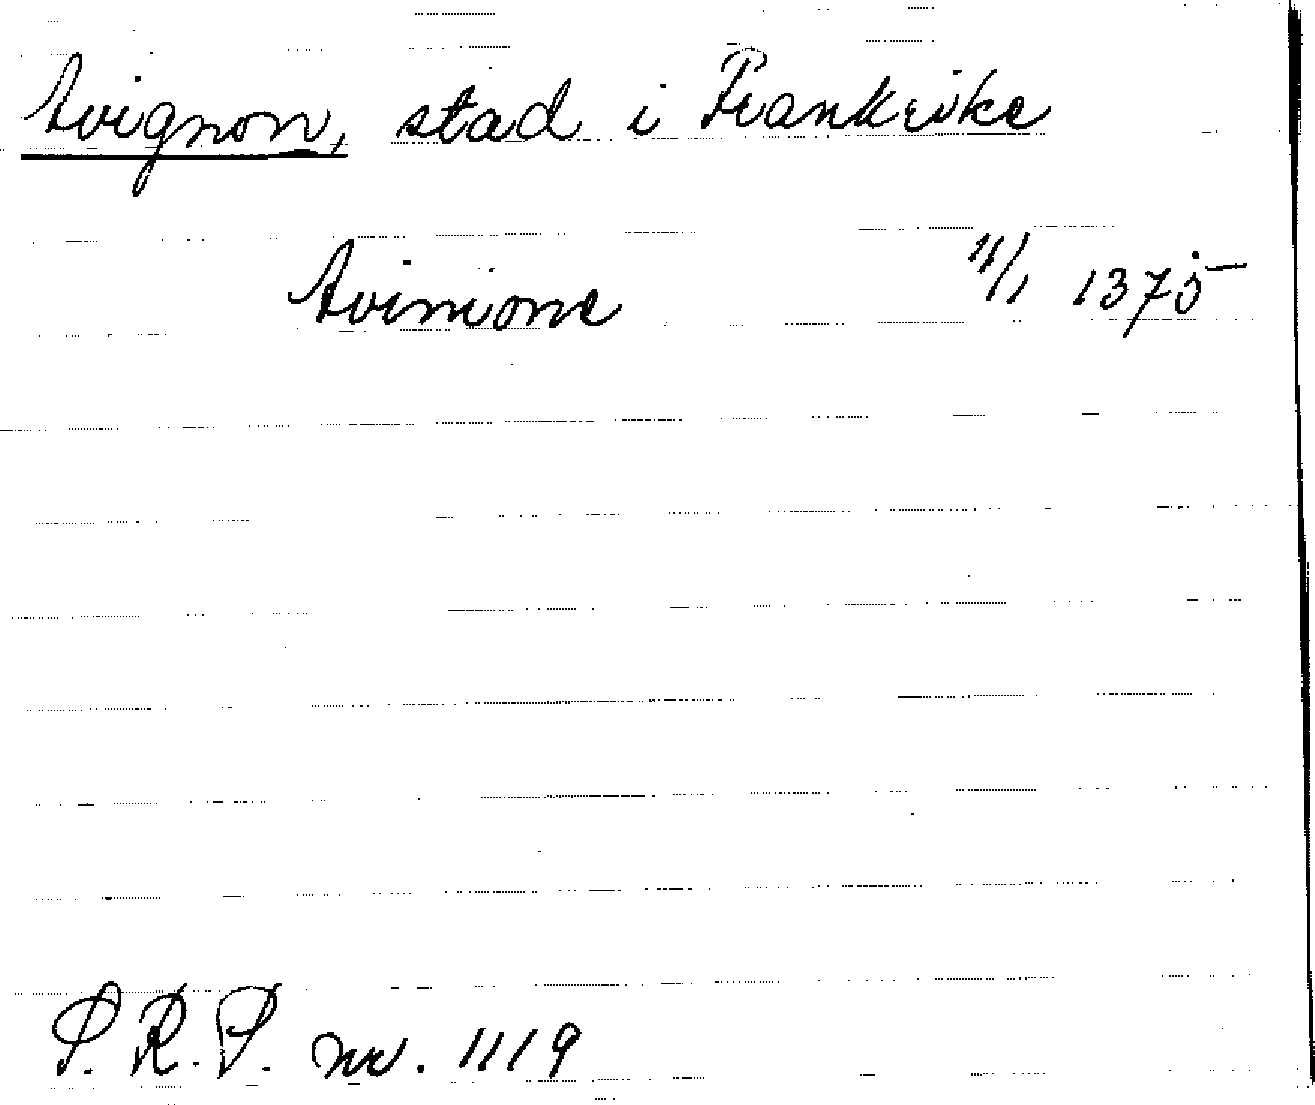 Avignon, stad i Frankrike
Avinione 11/1 1375
S.R.P. nr. 1119